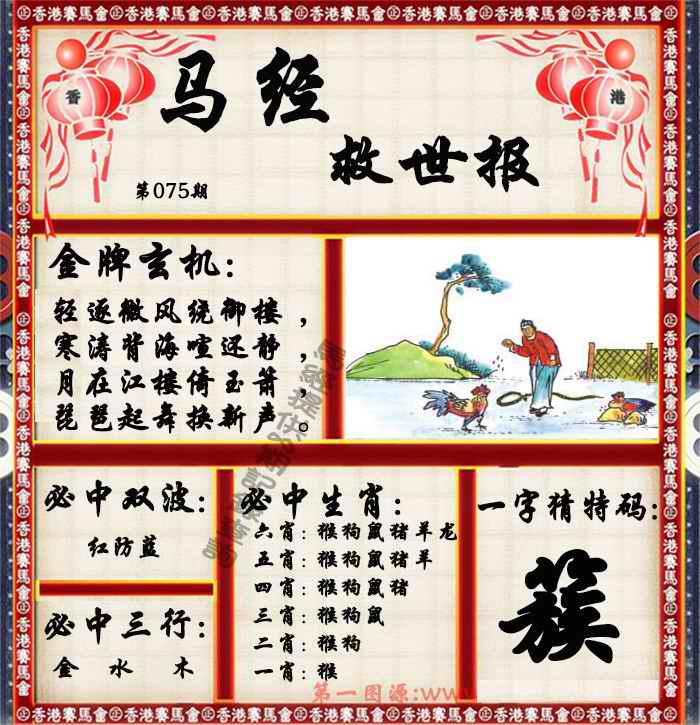 香港賽馬會
香 港
马经
救世报
第075期
金牌玄机：
轻逐微风绕御楼，
寒涛背海喧还静，
月在江楼倚玉箫，
琵琶起舞换新声。
必中双波：
红防蓝
必中三行：
金 水 木
必中生肖：
六肖：猴狗鼠猪羊龙
五肖：猴狗鼠猪羊
四肖：猴狗鼠猪
三肖：猴狗鼠
二肖：猴狗
一肖：猴
一字猜特码：
簇
第一图源:www